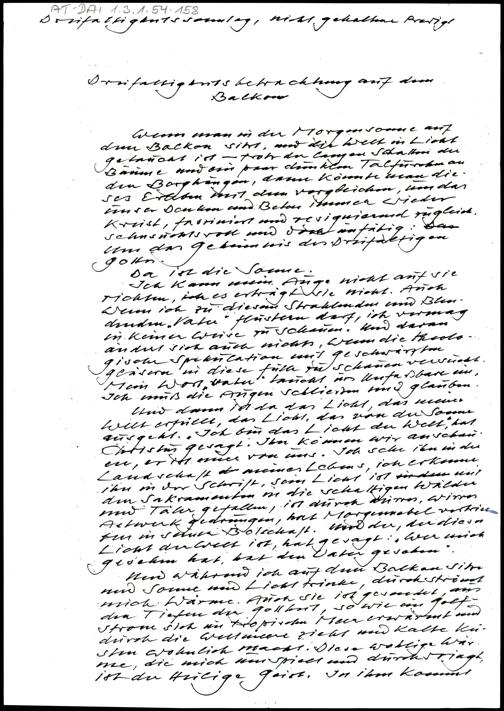 AT-DAI 1.3.1.54-158
Dreifaltigkeitssonntag, nicht gehaltene Predigt
Dreifaltigkeitsbetrachtung auf dem
Balkon
Wenn man in der Morgensonne auf
dem Balkon sitzt, und die Welt in Licht
getaucht ist – trotz der langen Schatten der
Bäume und ein paar dunklen Talfurchen an
den Berghängen, dann könnte man die-
ses Erleben mit dem vergleichen, um das
unser Denken und Beten immer wieder
kreist, fasziniert und resignierend zugleich,
sehnsuchtsvoll und unfähig:
Um das Geheimnis des Dreifaltigen
Gottes.
Da ist die Sonne.
Ich kann mein Auge nicht auf sie
richten, ich es erträgt sie nicht. Auch
wenn ich zu diesem Strahlenden und Blen-
denden "Vater" flüstern darf, ich vermag
in keiner Weise zu schauen. Und daran
ändert sich auch nichts, wenn die theolo-
gische Spekulation mit geschwärzten
Gläsern in diese Fülle zu schauen versucht.
Mein Wort "Vater" taucht ins Unfaßbare ein,
Ich muß die Augen schließen und glauben.
Und dann ist da das Licht, das meine
Welt erfüllt, das Licht, das von der Sonne
ausgeht. "Ich bin das Licht der Welt", hat
Christus gesagt. Ihn können wir anschau-
en, er ist einer von uns. Ich sehe ihn in der
Landschaft meines Lebens, ich erkenne
ihn in der Schrift, sein Licht ist mit
den Sakramenten in die schattigen Wälder
und Täler gefallen, ist durch dürres, wirres
Astwerk gedrungen, hat Morgennebel vertrie-
ben in seiner Botschaft. Und der, der dieses
Licht der Welt ist, hat gesagt: "Wer mich
gesehen hat, hat den Vater gesehen".
Und während ich auf dem Balkon sitze
und Sonne und Licht trinke, durchströmt
mich Wärme. Auch sie ist gesendet, aus
den Tiefen der Gottheit, so wie ein Golf-
strom sich im tropischen Meer erwärmt und
durch die Weltmeere zieht und kalte Kü-
sten wohnlich macht. Diese wohlige Wär-
me, die mich umspielt und durchdringt,
ist der Heilige Geist. In ihm kommt